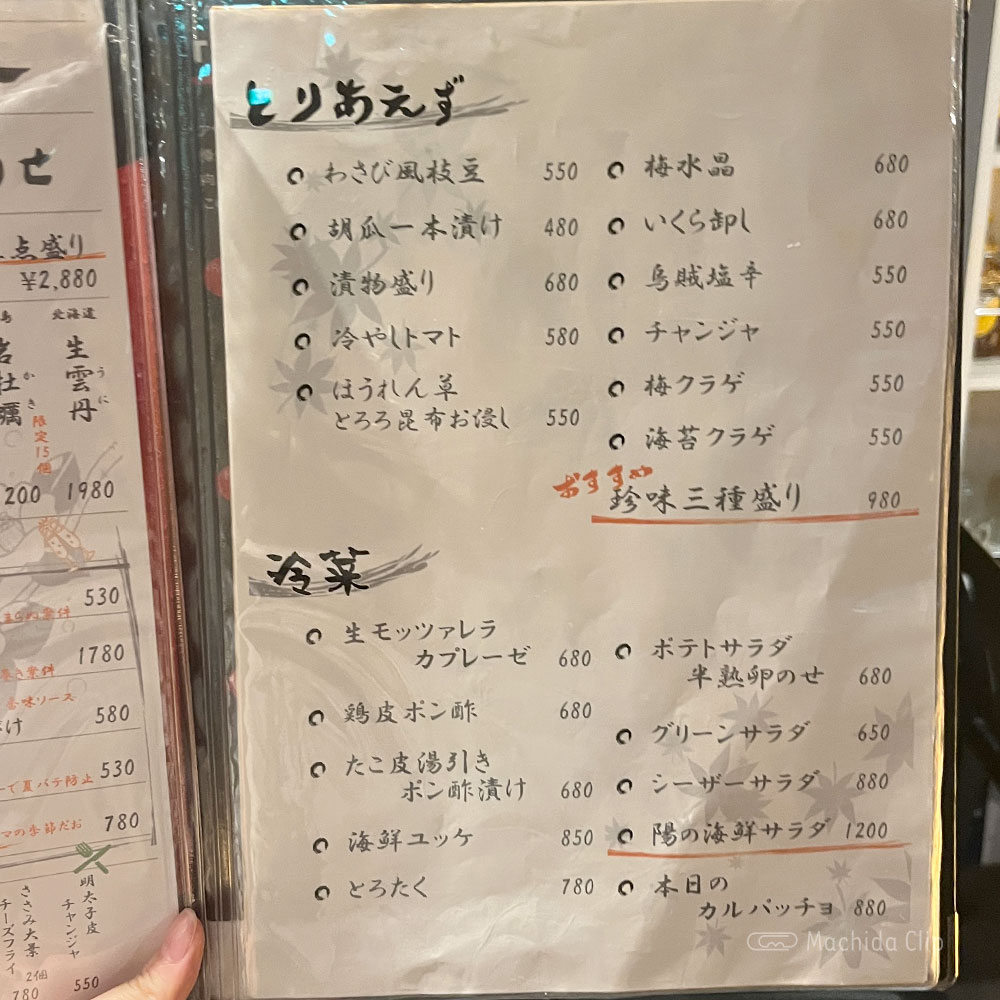 点盛り
¥2,880
北海道
生雲丹
うに
かき
限定15個
200
1980
530
1780
香味ソース
580
530
780
明太子皮
チャンジャ
550
ささみ大葉
チーズフライ
2個
780
とりあえず
わさび風枝豆 550
胡瓜一本漬け 480
漬物盛り 680
冷やしトマト 580
ほうれん草
とろろ昆布お浸し 550
梅水晶 680
いくら卸し 680
烏賊塩辛 550
チャンジャ 550
梅クラゲ 550
海苔クラゲ 550
おすすめ
珍味三種盛り 980
冷菜
生モッツァレラ
カプレーゼ 680
鶏皮ポン酢 680
たこ皮湯引き
ポン酢漬け 680
海鮮ユッケ 850
とろたく 780
ポテトサラダ
半熟卵のせ 680
グリーンサラダ 650
シーザーサラダ 880
陽の海鮮サラダ 1200
本日の
カルパッチョ 880
Machida Clip